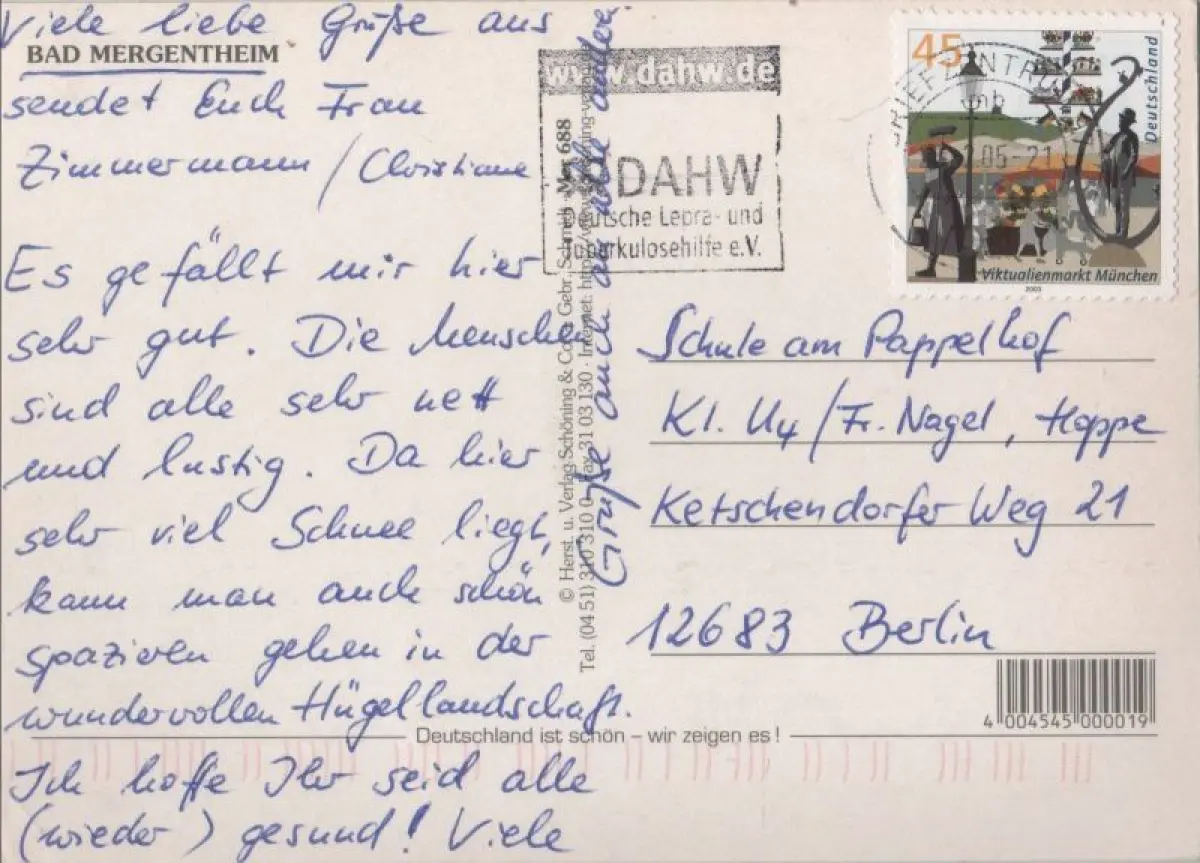 Viele liebe Grüße aus
BAD MERGENTHEIM
sendet Euch Frau
Zimmermann / Christiane
Es gefällt mir hier
sehr gut. Die Menschen
sind alle sehr nett
und lustig. Da hier
sehr viel Schnee liegt,
kann man auch schön
spazieren gehen in der
wundervollen Hügellandschaft.
Ich hoffe Ihr seid alle
(wieder) gesund! Viele
Grüße auch an alle andere
© Herst. u. Verlag Schöning & Co + Gebr. Schmidt · Mer 688
Tel. (04 51) 310 310 0 · Fax 31 03 130 · Internet: http://www.schoening-verlag
www.dahw.de
DAHW
Deutsche Lepra- und
Tuberkulosehilfe e.V.
BRIEFZENTRUM
05-21
45
Deutschland
Viktualienmarkt München
2003
Schule am Pappelhof
Kl. U4/Fr. Nagel, Hoppe
Ketschendorfer Weg 21
12683 Berlin
4 004545 000019
Deutschland ist schön – wir zeigen es!